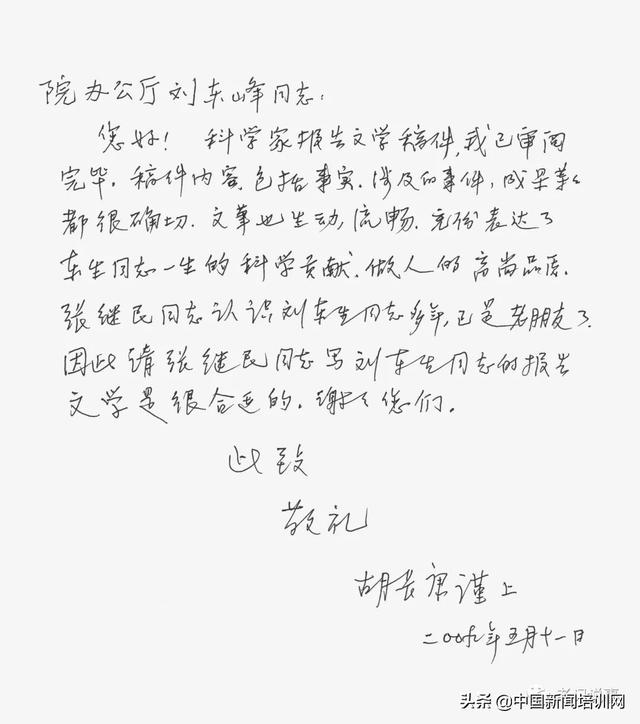 院办公厅刘东峰同志：
您好！科学家报告文学稿件，我已审阅
完毕。稿件内容，包括事实、涉及的事件，成果等等
都很确切。文笔也生动，流畅。充份表达了
东生同志一生的科学贡献，做人的高尚品质。
张继民同志认识刘东生同志多年，已是老朋友了。
因此请张继民同志写刘东生同志的报告
文学是很合适的。谢谢您们。
此致
敬礼
胡长康谨上
二〇〇九年五月十一日
头条 @中国新闻培训网